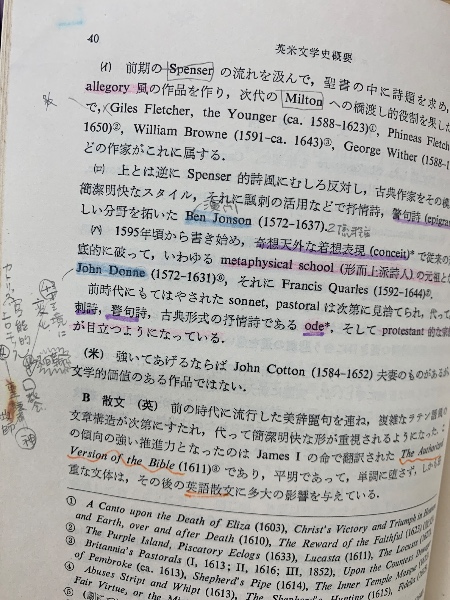 40
英米文学史概要
(イ) 前期の Spenser の流れを汲んで，聖書の中に詩題を求め，
allegory 風の作品を作り，次代の Milton への橋渡し的役割を果した
で，Giles Fletcher, the Younger (ca. 1588–1623)①, Phineas Fletch
1650)②, William Browne (1591–ca. 1643)③, George Wither (1588–1
どの作家がこれに属する。
(ロ) 上とは逆に Spenser 的詩風にむしろ反対し，古典作家をその模
簡潔明快なスタイル，それに諷刺の活用などで抒情詩，警句詩 (epigra
しい分野を拓いた Ben Jonson (1572–1637).
(ハ) 1595年頃から書き始め，奇想天外な着想表現 (conceit)* で従来の
底的に破って，いわゆる metaphysical school (形而上派詩人) の元祖と
John Donne (1572–1631)⑧, それに Francis Quarles (1592–1644)
前時代にもてはやされた sonnet, pastoral は次第に見捨てられ，代って
刺詩，警句詩，古典形式の抒情詩である ode*，そして protestant 的な宗
が目立つようになっている。
(米) 強いてあげるならば John Cotton (1584–1652) 夫妻のものがあるが
文学的価値のある作品ではない。
B 散文 (英) 前の時代に流行した美辞麗句を連ね，複雑なラテン語風の
文章構造が次第にすたれ，代って簡潔明快な形が重視されるようになった。
の傾向の強い推進力となったのは James I の命で翻訳された The Authorized
Version of the Bible (1611) であり，平明であって，単調に堕さず，しかも
重な文体は，その後の英語散文に多大の影響を与えている。
① A Canto upon the Death of Eliza (1603), Christ's Victory and Triumph in Heaven
and Earth, over and after Death (1610), The Reward of the Faithful (1623)
② The Purple Island, Piscatory Eclogs (1633), Lucasta (1611), The Locusts
③ Britannia's Pastorals (I, 1613; II, 1616; III, 1852), Upon the Countess Dowager
of Pembroke (ca. 1613), Shepherd's Pipe (1614), The Inner Temple Masque
④ Abuses Stript and Whipt (1613), The Shepherd's Hunting (1615), Fidelia
Fair Virtue, or the Mi